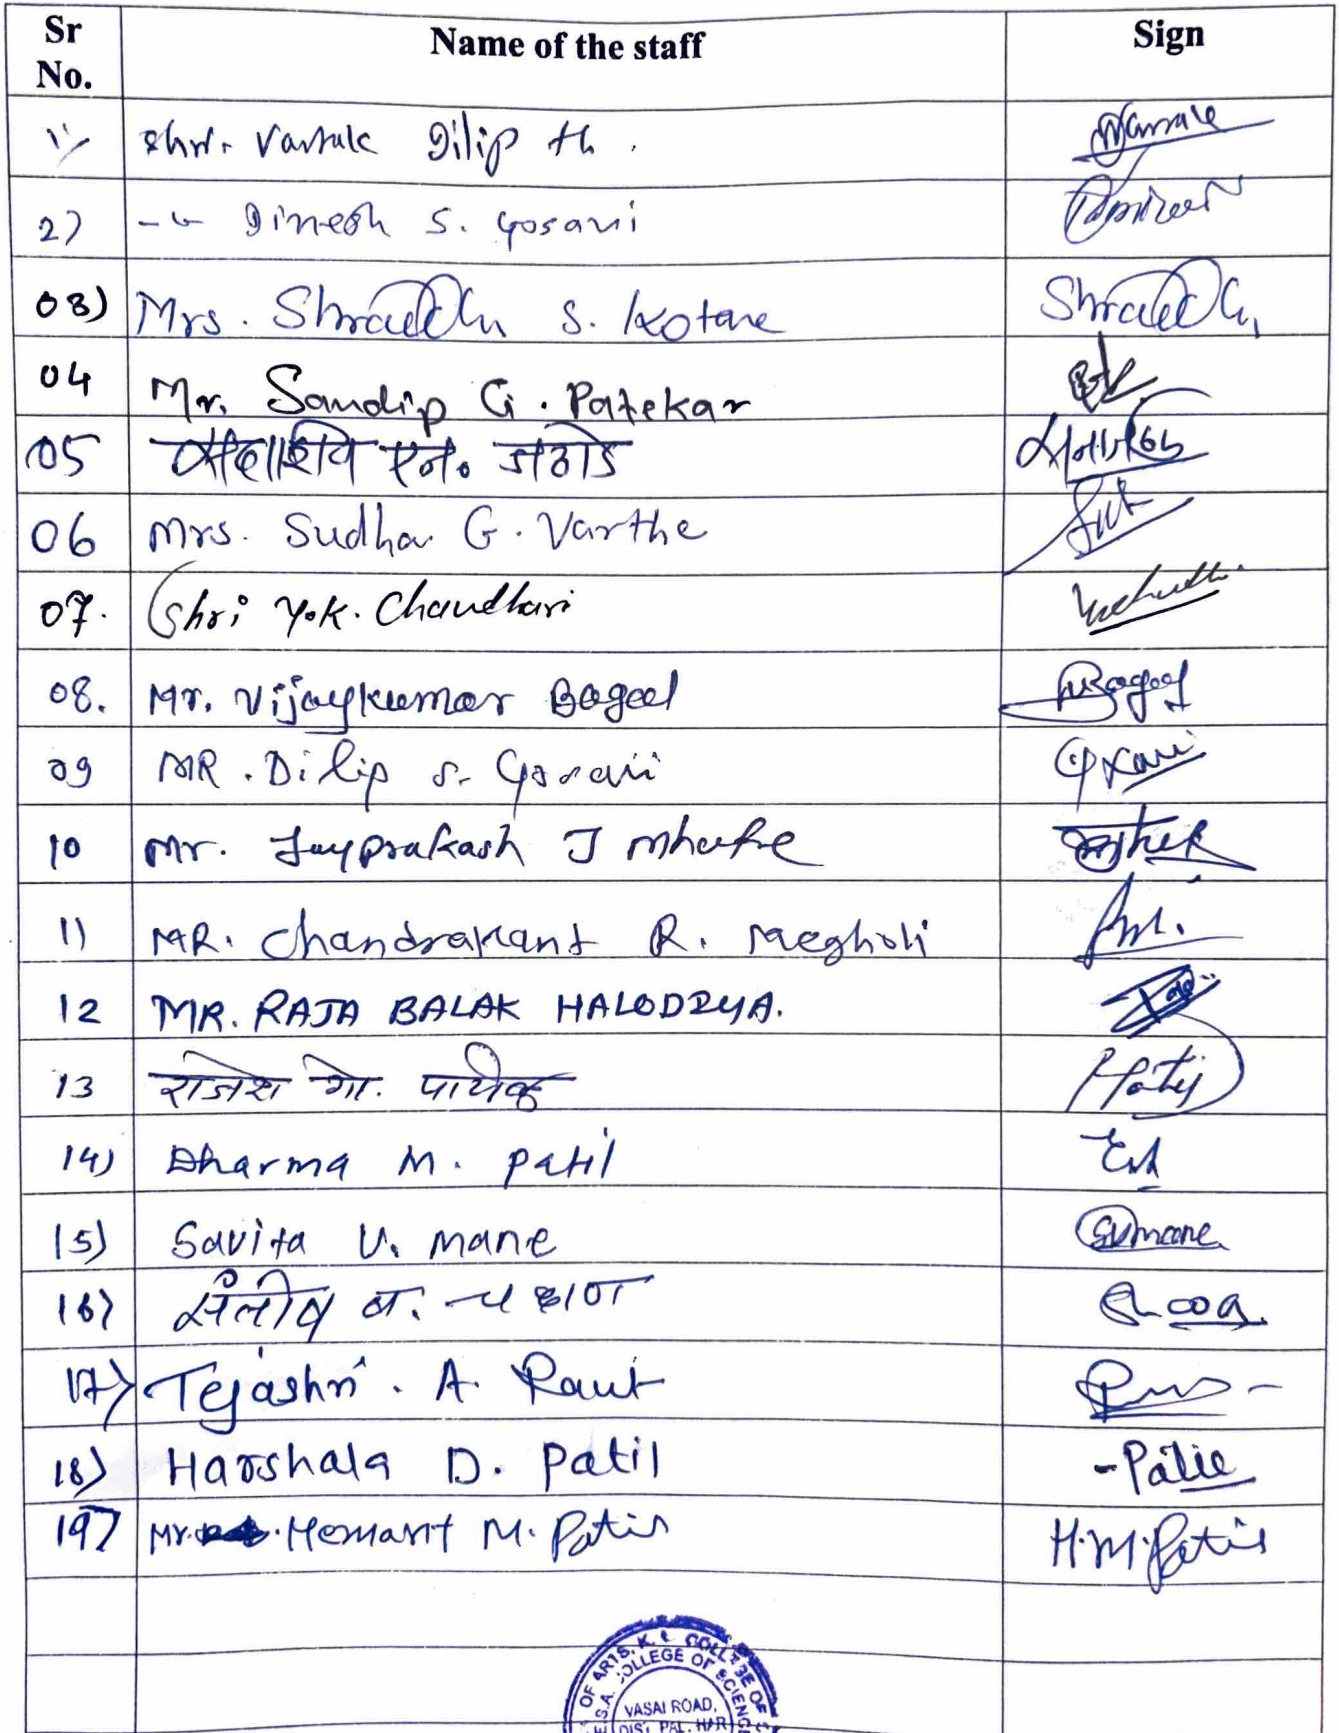 Sr No. Name of the staff Sign
1) Shri. Vartak Dilip th.
2) -"- Dinesh S. Gosavi
03) Mrs. Shraddha S. Kotare Shraddha
04 Mr. Sandip G. Patekar
05 सदाशिव एन. जठोडे
06 Mrs. Sudha G. Varthe
07. Shri Y.K. Chaudhari
08. Mr. Vijaykumar Bagool Bagool
09 MR. Dilip S. Gosavi
10 Mr. Jayprakash J Mhatre
11) MR. Chandrakant R. Megholi
12 MR. RAJA BALAK HALODZYA.
13 राजेश गो.
14) Dharma M. Patil
15) Savita V. Mane SVmane
16) संतोष ब. चव्हाण
17) Tejashri. A. Raut
18) Harshala D. Patil -Patil
19) Mr. Hemant M. Patil H.M.Patil
OF ARTS, K. COLLEGE OF
E.S.A. COLLEGE OF SCIENCE
VASAI ROAD,
DIST PAL. HAR